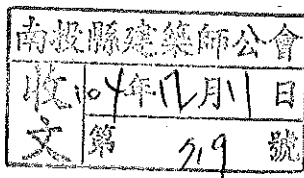 南投縣建築師公會
收文
104年12月11日
第519號